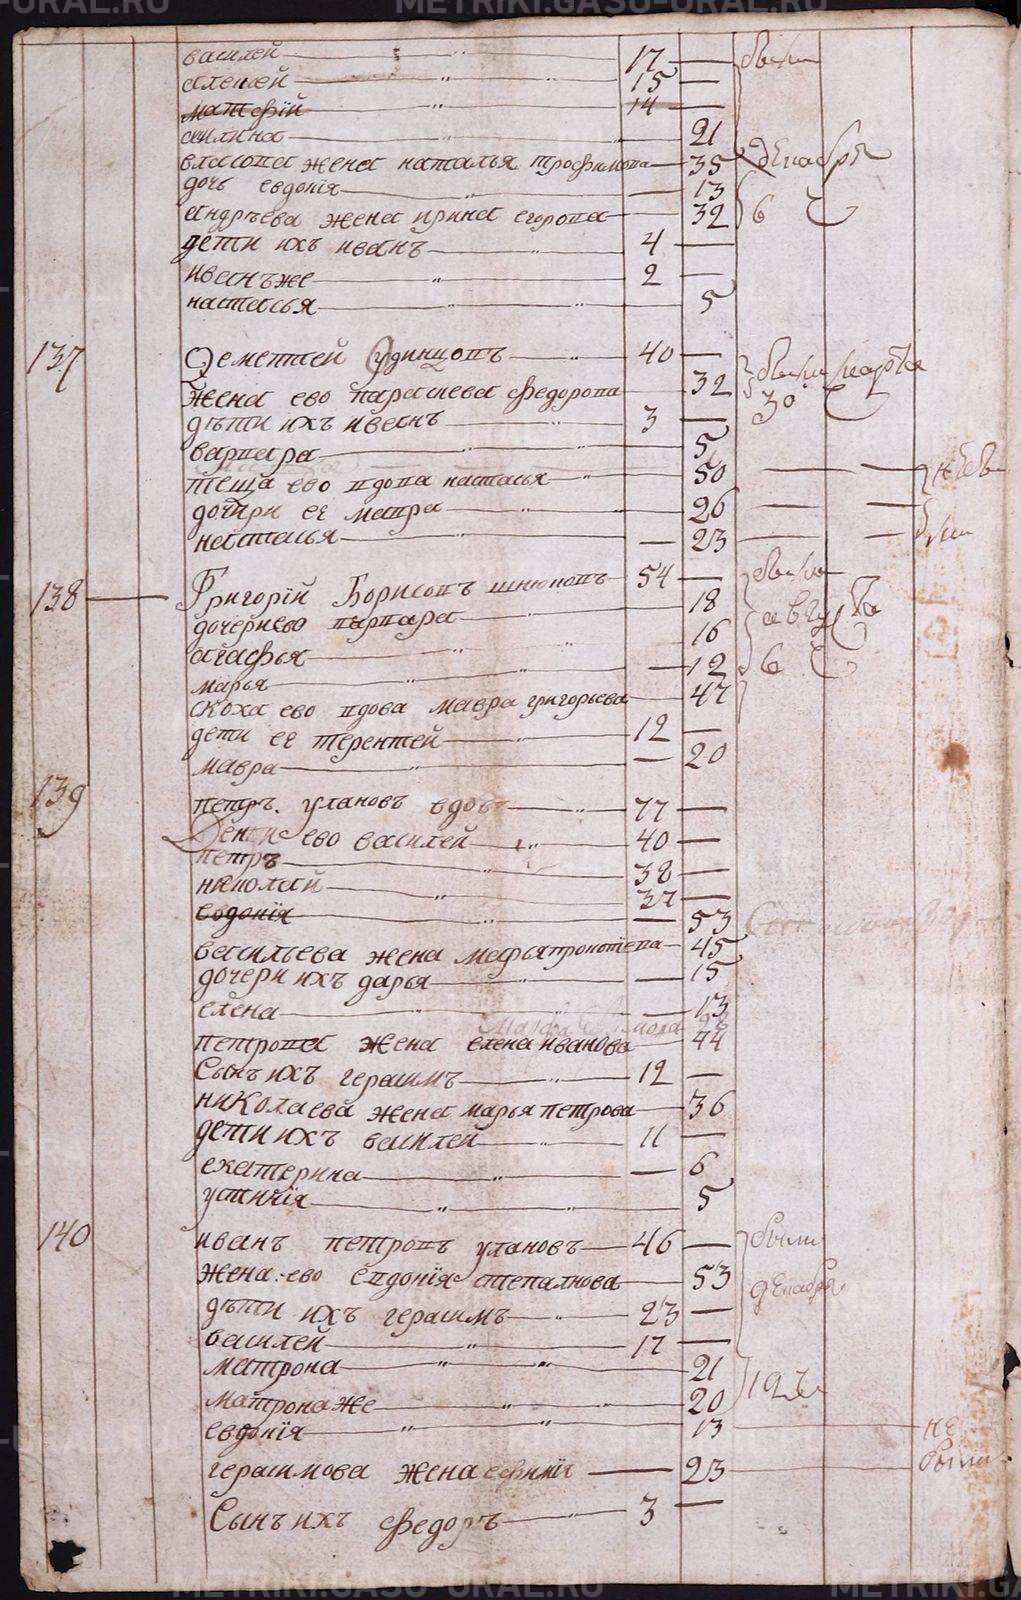 василей 17 — были
алексей 15 —
матфӥй 14 —
акилина 21
власова жена наталья трофимова 35 декабря
дочь евдокїя — 13
андрѣева жена ирина егорова 32 6 ч
дети ихъ иванъ 4 —
иванъ же 2 —
настасья 5
137 Дементей Одинцовъ 40 — были марта
жена ево параскева федорова 32 30
дѣти ихъ иванъ 3 —
варвара 5
теща ево вдова настасья 50 — — не бы
дочери ее мавра 26 — —
настасья — 23 — — ли
138 Григорїй Борисовъ 54 — были
дочери ево варвара 18 августа
агафья 16
марья — 12 6 ч
сноха ево вдова мавра григорьева 47
дети ее терентей 12 —
мавра — 20
139 петръ улановъ вдовъ 77 —
Дети ево василей 40 —
петръ 38 —
николай 37 —
евдокїя — 53
васильева жена марья прокопева 45
дочери ихъ дарья — 15
елена — 13
петрова жена елена иванова 44
Сынъ ихъ герасимъ 12 —
николаева жена марья петрова 36
дети ихъ василей 11 —
екатерина — 6
устинїя 5
140 иванъ петровъ улановъ 46 — были
жена ево евдокїя степанова 53 декабря
дѣти ихъ герасимъ 23 —
василей 17 —
матрона 21
матрона же 20 12 ч
евдокїя 13 не
герасимова жена — 23 были
Сынъ ихъ федоръ 3 —
METRIKI.GASU-URAL.RU